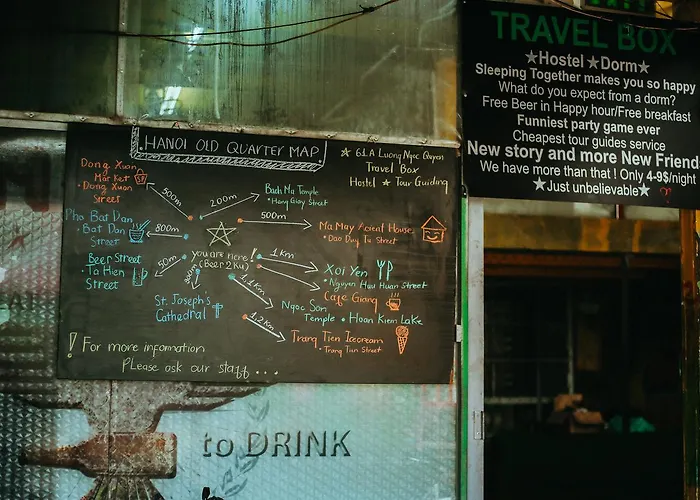 HANOI OLD QUARTER MAP
☆ 61A Luong Ngoc Quyen
Travel Box
Hostel ☆ Tour Guiding
Dong Xuan
Market
• Dong Xuan
Street
500m
200m
Bach Ma Temple
• Hang Giay Street
500m
Ma May Acient House
• Dao Duy Tu Street
Pho Bat Dan
• Bat Dan
Street
800m
you are here!
(Beer 2ku)
Beer Street
• Ta Hien
Street
50m
1km
Xoi Yen
• Nguyen Huu Huan Street
Cafe Giang
St. Joseph's
Cathedral
1,1km
Ngoc Son
Temple • Hoan Kiem Lake
1,2km
Trang Tien Icecream
• Trang Tien Street
! For more information
Please ask our staff ....
TRAVEL BOX
★Hostel ★Dorm★
Sleeping Together makes you so happy
What do you expect from a dorm?
Free Beer in Happy hour/Free breakfast
Funniest party game ever
Cheapest tour guides service
New story and more New Friend
We have more than that ! Only 4-9$/night
★Just unbelievable★
to DRINK